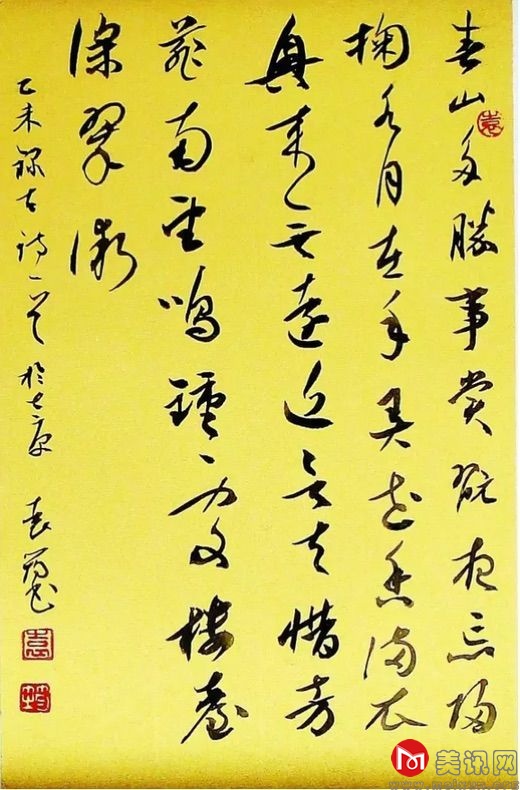 春山多勝事賞翫夜忘歸
掬水月在手弄花香滿衣
興來无遠近欲去惜芳
菲南望鳴鐘處樓臺
深翠微
乙未錄古詩一首於 袁
袁
美讯网